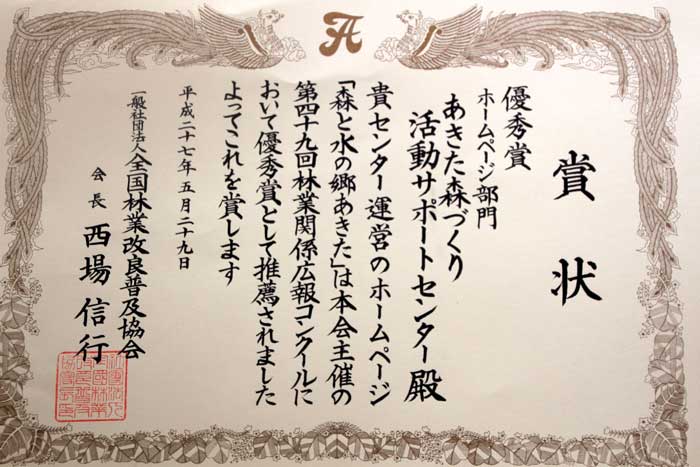 賞状
優秀賞
ホームページ部門
あきた森づくり
活動サポートセンター殿
貴センター運営のホームページ
「森と水の郷あきた」は本会主催の
第四十九回林業関係広報コンクールに
おいて優秀賞として推薦されました
よってこれを賞します
平成二十七年五月二十九日
一般社団法人全国林業改良普及協会
会長 西場信行